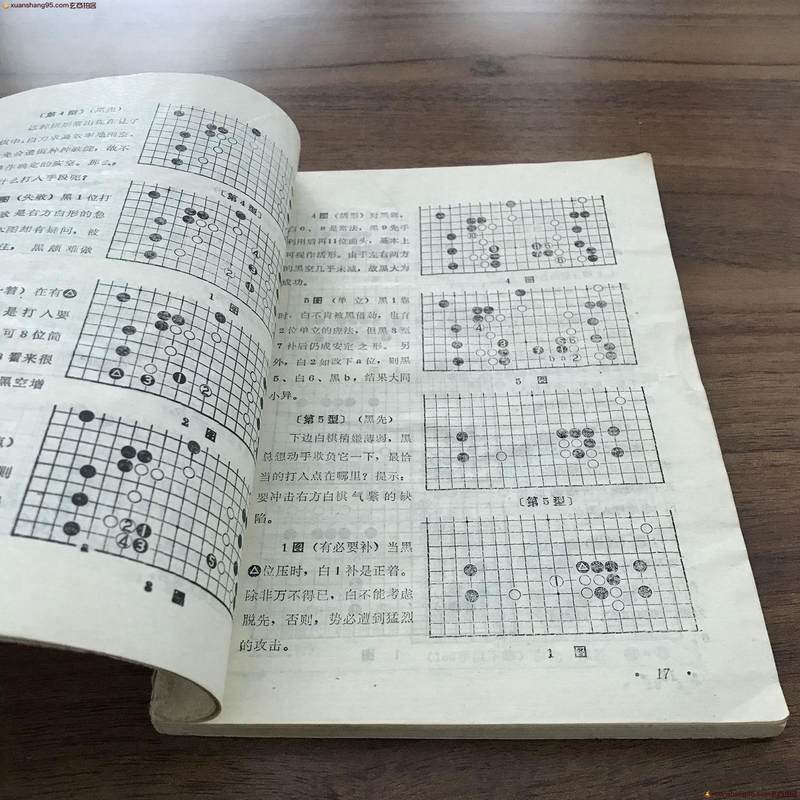 xuanshang95.com玄西拍客
〔第4型〕（黑先）
什么打入手段呢？
图（失败）黑1位打
是右方白形的急
本图却有疑问，被
住，黑颇难做
着）在有△
是打入要
可8位简
看来很
黑空增
〔第4型〕
1 图
2 图
3 图
4图（活形）对黑
6、8是常法，黑9先手
利用后再11位曲头，基本上
可视作活形。由于左右两方
的黑空几乎未减，故黑大为
成功。
5图（单立）黑1靠
时，白不肯被黑借劲，也有
2位单立的应法，但黑3至
7补后仍成安定之形。另
外，白2如改下a位，则黑
5、白6、黑b，结果大同
小异。
〔第5型〕（黑先）
下边白棋稍嫌薄弱，黑
总想动手欺负它一下，最恰
当的打入点在哪里？提示：
要冲击右方白棋气紧的缺
陷。
1图（有必要补）当黑
△位压时，白1补是正着。
除非万不得已，白不能考虑
脱先，否则，势必遭到猛烈
的攻击。
4 图
5 图
〔第5型〕
1 图
· 17 ·
xuanshang95.com玄西拍客